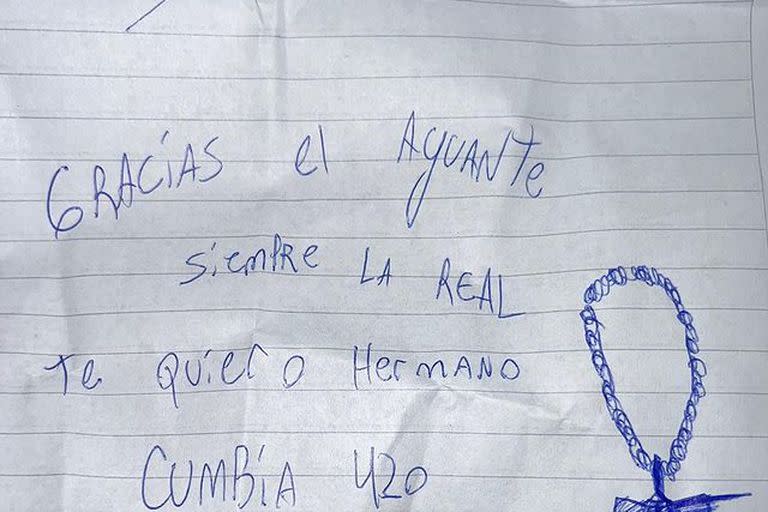 GRACIAS el AGUANTe
siempre LA REAL
te quiero HermANO
CUMBIA 420